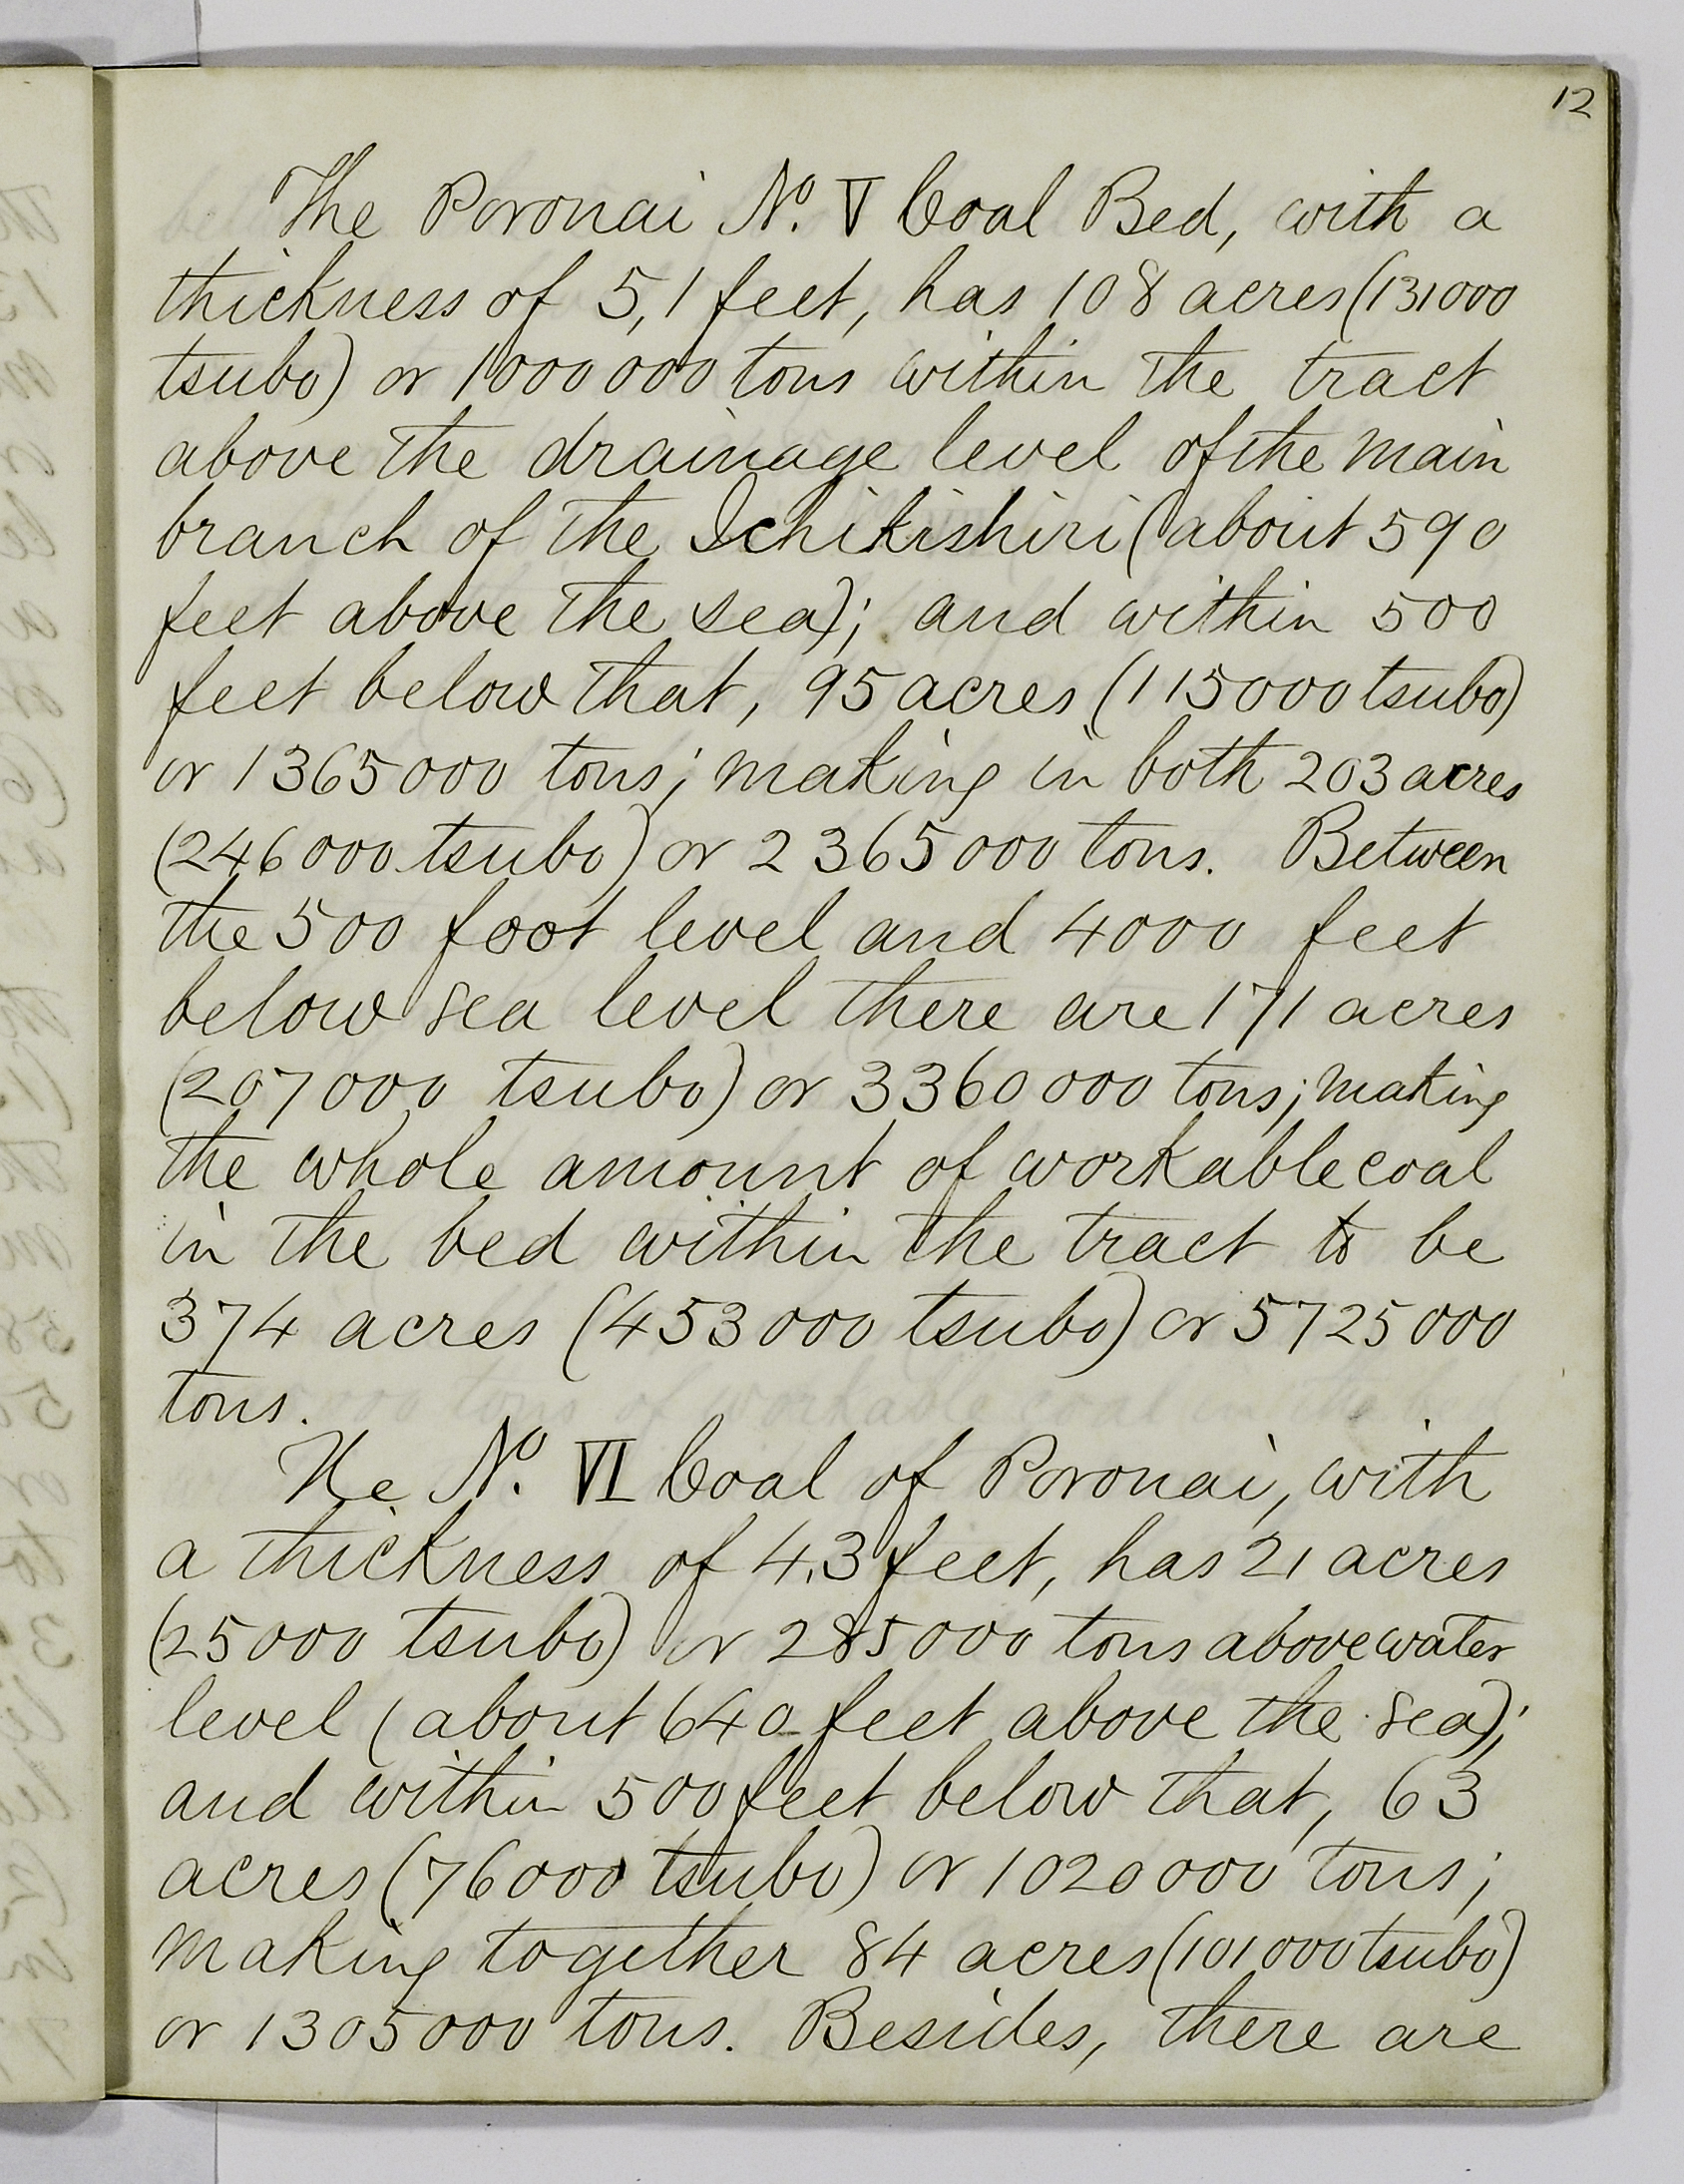 12
The Poronai No. V Coal Bed, with a
thickness of 5,1 feet, has 108 acres (131000
tsubo) or 1000000 tons within the tract
above the drainage level of the main
branch of the Ichikishiri (about 590
feet above the sea); and within 500
feet below that, 95 acres (115000 tsubo)
or 1365000 tons; making in both 203 acres
(246000 tsubo) or 2365000 tons. Between
the 500 foot level and 4000 feet
below sea level there are 171 acres
(207000 tsubo) or 3360000 tons; making
the whole amount of workable coal
in the bed within the tract to be
374 acres (453000 tsubo) or 5725000
tons.
The No. VI Coal of Poronai, with
a thickness of 4.3 feet, has 21 acres
(25000 tsubo) or 285000 tons above water
level (about 640 feet above the sea);
and within 500 feet below that, 63
acres (76000 tsubo) or 1020000 tons;
making together 84 acres (101000 tsubo)
or 1305000 tons. Besides, there are